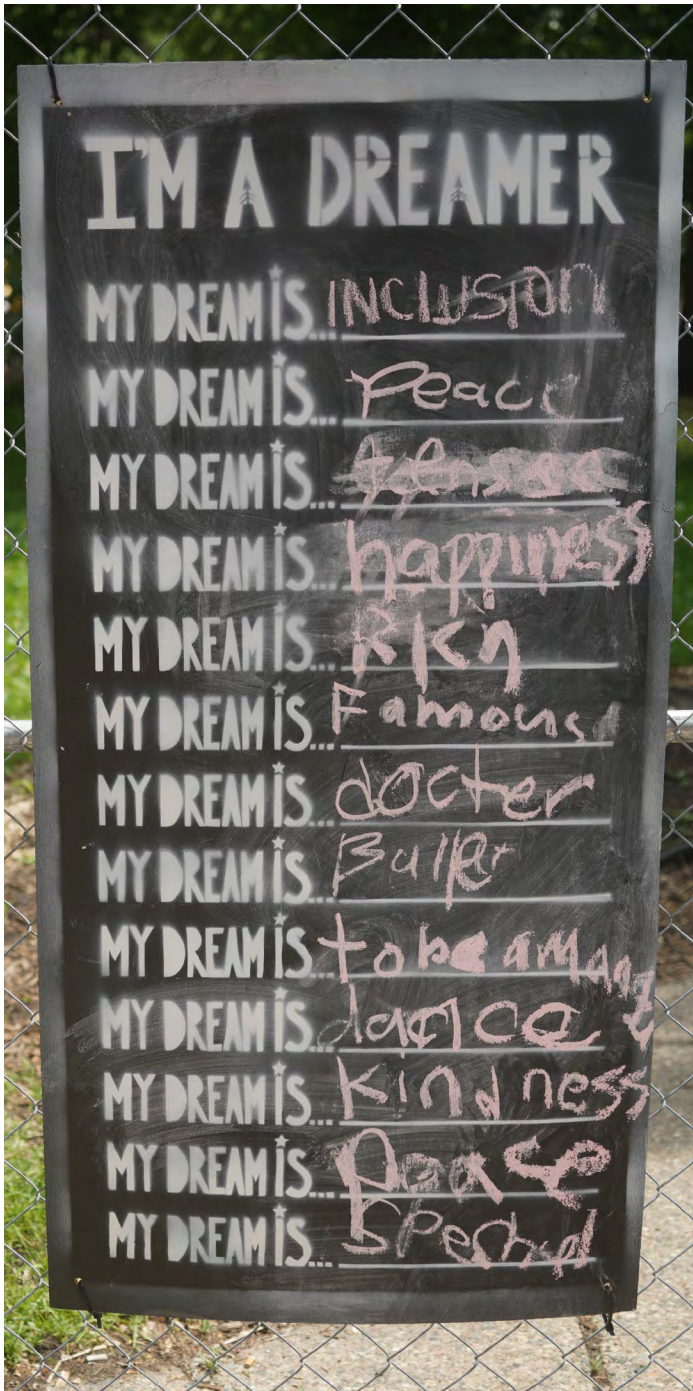 I'M A DREAMER
MY DREAM IS... INCLUSION
MY DREAM IS... Peace
MY DREAM IS...
MY DREAM IS... happiness
MY DREAM IS... Rich
MY DREAM IS... Famous
MY DREAM IS... docter
MY DREAM IS...
MY DREAM IS... to be a
MY DREAM IS... dance
MY DREAM IS... kindness
MY DREAM IS... Peace
MY DREAM IS...